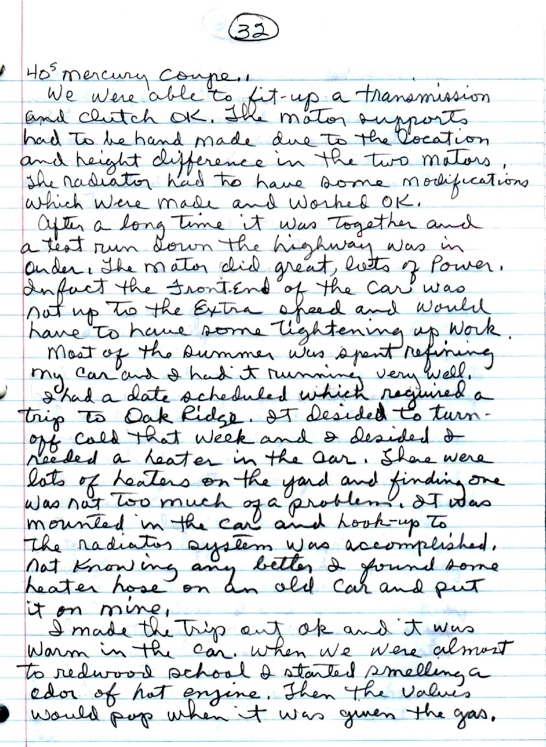 32
40s Mercury Coupe..
We were able to fit-up a transmission
and clutch OK. The motor supports
had to be hand made due to the location
and height difference in the two motors.
The radiator had to have some modifications
which were made and worked OK.
After a long time it was together and
a test run down the highway was in
order. The motor did great, lots of Power.
Infact the Front-End of the car was
not up to the Extra speed and would
have to have some Tightening up work.
Most of the summer was spent refining
my car and I had it running very well.
I had a date scheduled which required a
trip to Oak Ridge. It desided to turn-
off cold that week and I desided I
needed a heater in the car. There were
lots of heaters on the yard and finding one
was not too much of a problem. It was
mounted in the car and hook-up to
the radiator system was accomplished.
Not knowing any better I found some
heater hose on an old car and put
it on mine.
I made the trip out ok and it was
warm in the car. When we were almost
to redwood school I started smelling a
odor of hot engine. Then the values
would pop when it was given the gas.